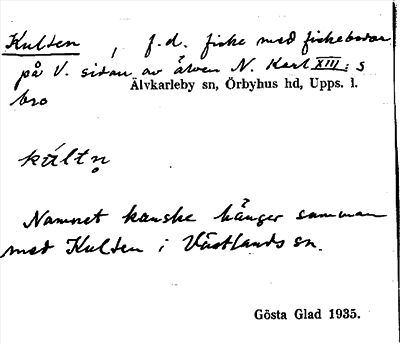 Kulten, f.d. fiske med fiskebodar
på V. sidan av älven N. Karl XIII:s
bro
Älvkarleby sn, Örbyhus hd, Upps. l.
kúltn̥
Namnet kanske hänger samman
med Kulten i Västlands sn.
Gösta Glad 1935.